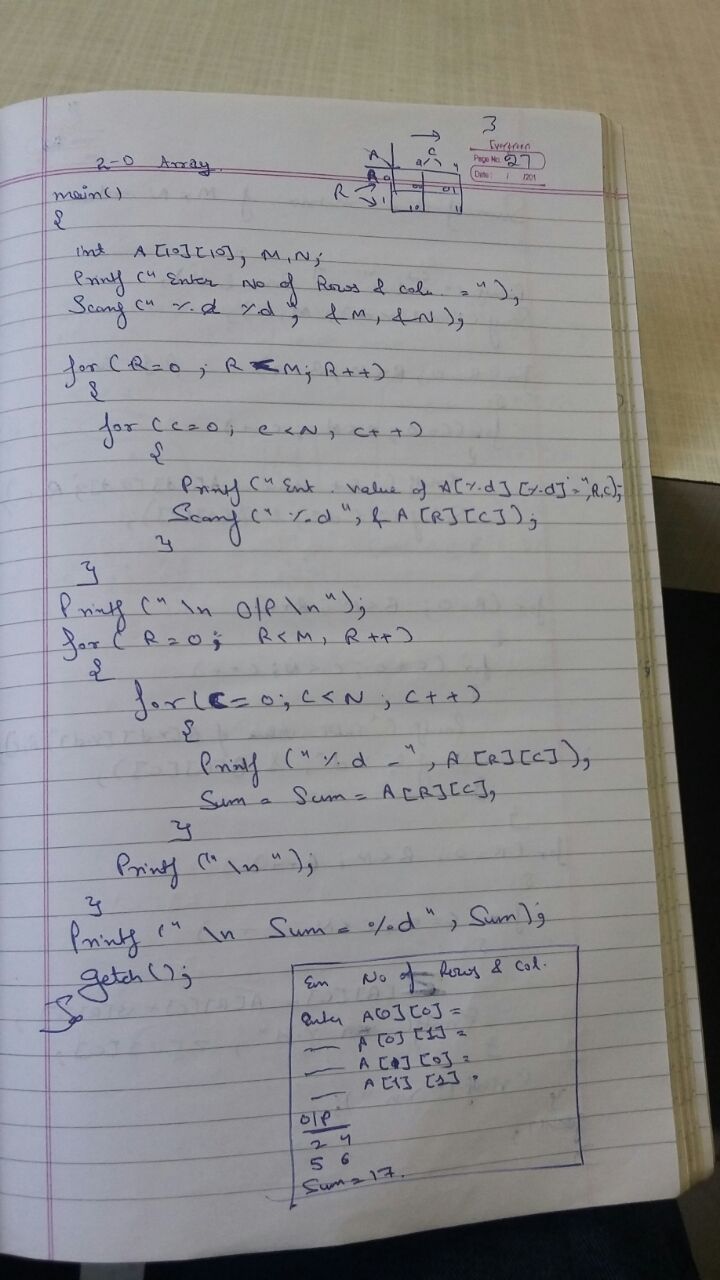 3
Evergreen
Page No. 27
Date: / /201
2-D Array
A C
0 1
R 0 00 01
1 10 11
main()
{
int A[10][10], M,N;
Printf (" Enter No of Rows & colu. = ");
Scanf (" %d %d ", &M, &N);
for (R=0 ; R<M; R++)
{
for (C=0; C<N; C++)
{
Printf (" Ent. value of A[%d][%d]=",R,C);
Scanf (" %d ", & A[R][C]);
}
}
Printf (" \n O/P \n ");
for ( R=0; R<M, R++)
{
for (C=0; C<N ; C++)
{
Printf (" %d - ", A[R][C]);
Sum = Sum = A[R][C],
}
Printf (" \n ");
}
Printf (" \n Sum = %d ", Sum);
getch();
}
En No of Rows & Col.
Enter A[0][0] =
— A[0][1] =
— A[1][0] =
— A[1][1] =
O/P
2 4
5 6
Sum = 17.